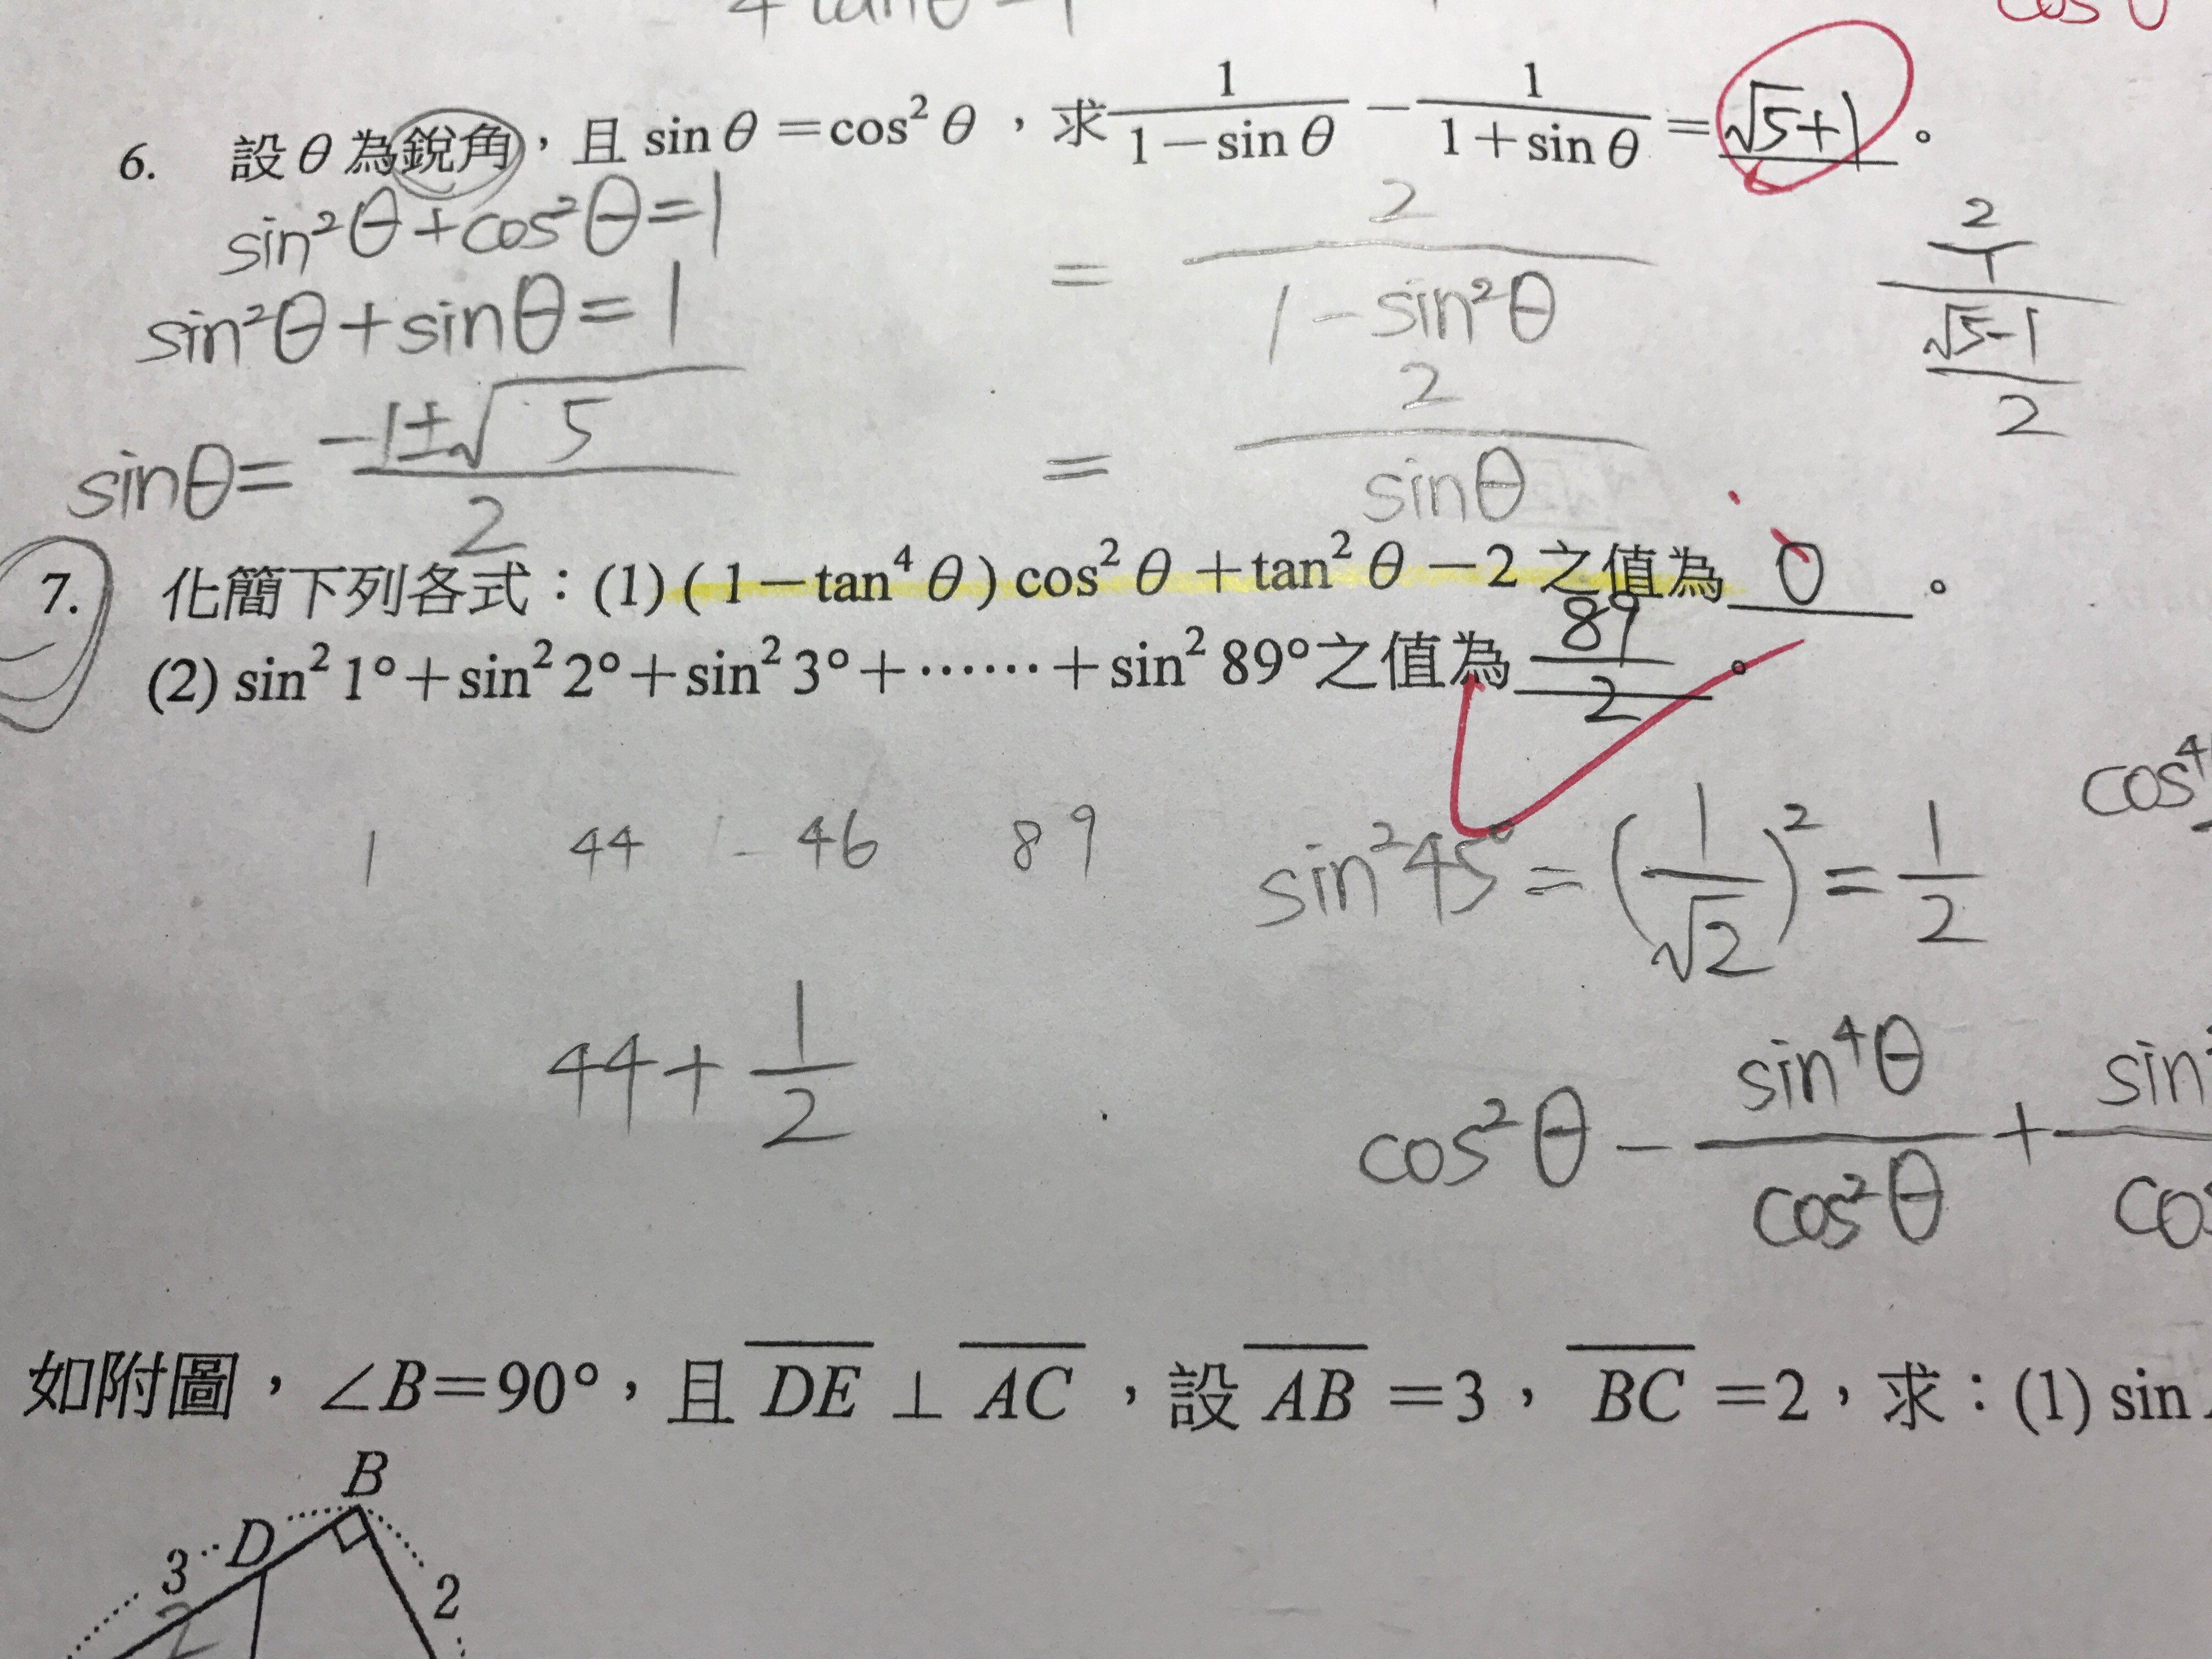 4 tanθ - 1
cos θ
6. 設θ為銳角，且 sin θ＝cos² θ ，求 1/(1－sin θ) － 1/(1＋sin θ) ＝ √5+1 。
sin²θ+cos²θ=1
= 2/(1-sin²θ)
(2/1)/((√5-1)/2)
sin²θ+sinθ=1
sinθ= (-1±√5)/2
= 2/sinθ
7. 化簡下列各式：(1) ( 1－tan⁴ θ ) cos² θ ＋tan² θ －2 之值為 0 。
(2) sin² 1°＋sin² 2°＋sin² 3°＋……＋sin² 89°之值為 89/2 。
cos⁴
1 44 - 46 89
sin²45° = (1/√2)² = 1/2
44 + 1/2
cos²θ - sin⁴θ/cos²θ + sin
cos
如附圖，∠B＝90°，且 DE ⊥ AC ，設 AB ＝3， BC ＝2，求：(1) sin
B
D
3
2
2